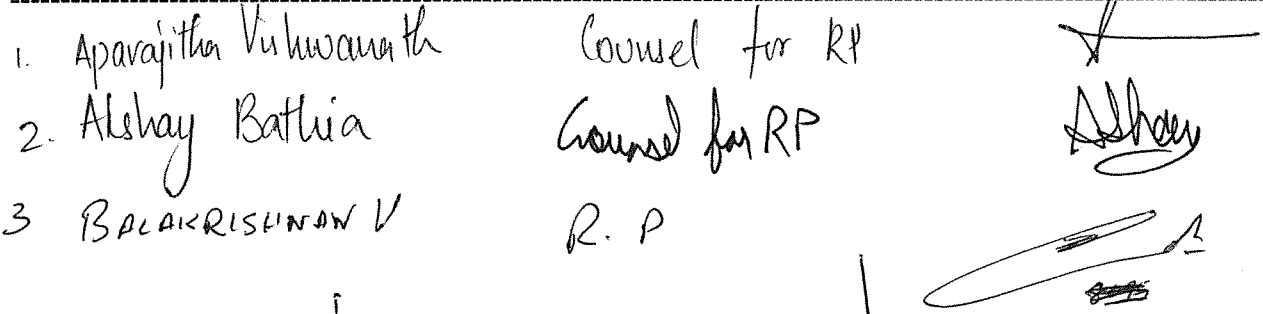 1. Aparajitha Vishwanath Counsel for RP
2. Akshay Bathia Counsel for RP Akshay
3 BALAKRISHNAN V R. P